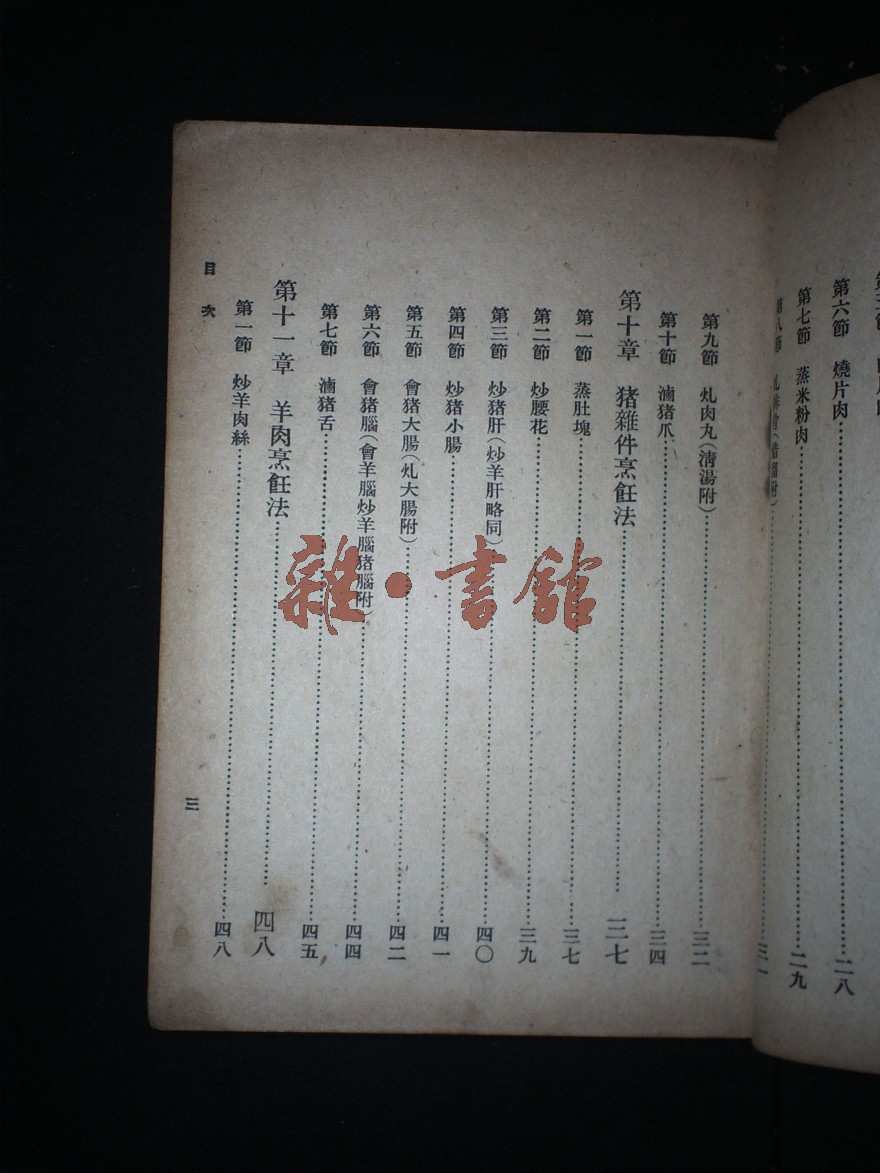 第六節　燒片肉……二八
第七節　蒸米粉肉……二九
第八節
第九節　炸肉丸（清湯附）……三二
第十節　滷猪爪……三四
第十章　猪雜件烹飪法……三七
第一節　蒸肚塊……三七
第二節　炒腰花……三九
第三節　炒猪肝（炒羊肝略同）……四〇
第四節　炒猪小腸……四一
第五節　會猪大腸（炸大腸附）……四二
第六節　會猪腦（會羊腦炒羊腦猪腦附）……四四
第七節　滷猪舌……四五
第十一章　羊肉烹飪法……四八
第一節　炒羊肉絲……四八
目次
三
雜·書館